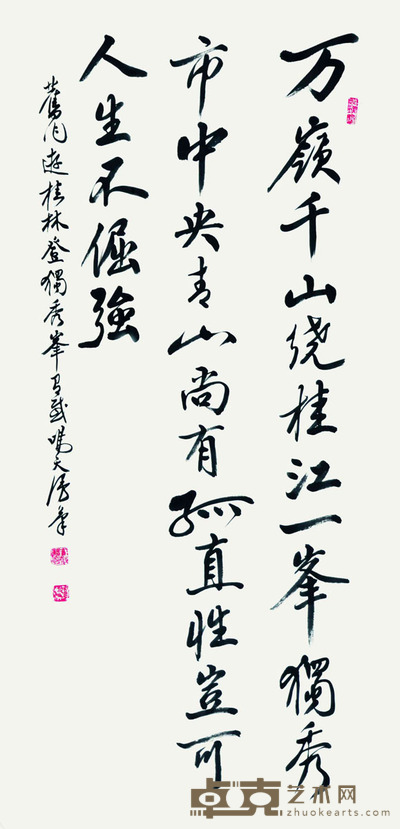 万嶺千山绕桂江一峯獨秀
市中央青山尚有孤直性豈可
人生不倔強
遊桂林登獨秀峯有感鳴天
卓克艺术网
zhuokearts.com